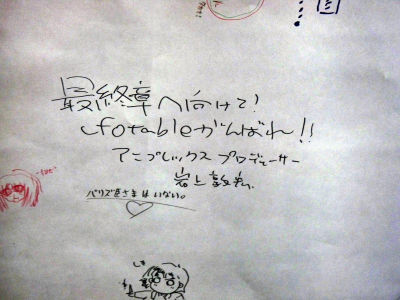 最終章へ向けて!
ufotableがんばれ!!
アニプレックス プロデューサー
岩上敦宏
バリズ臣さま は いない。